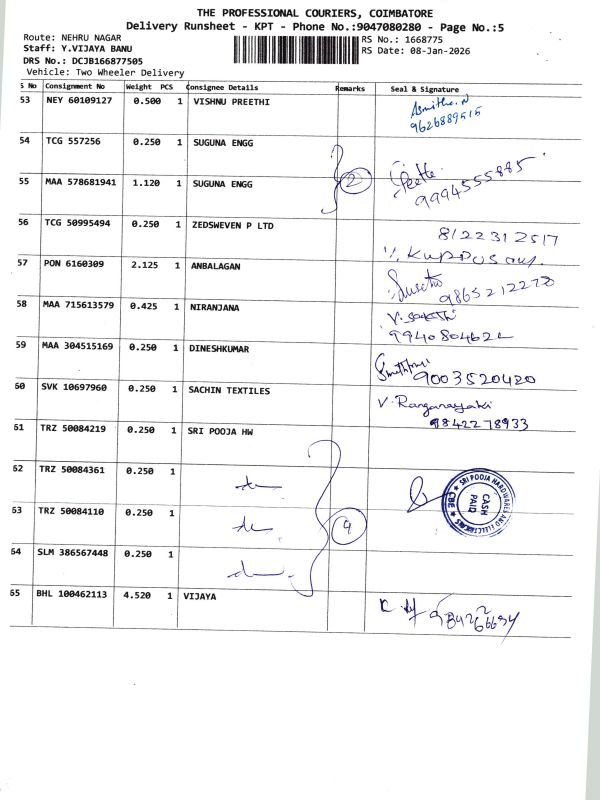 THE PROFESSIONAL COURIERS, COIMBATORE
Delivery Runsheet - KPT - Phone No.:9047080280 - Page No.:5
Route: NEHRU NAGAR
RS No.: 1668775
Staff: Y.VIJAYA BANU
RS Date: 08-Jan-2026
DRS No.: DCJB166877505
Vehicle: Two Wheeler Delivery
S No Consignment No Weight PCS Consignee Details Remarks Seal & Signature
53 NEY 60109127 0.500 1 VISHNU PREETHI
9626889515
54 TCG 557256 0.250 1 SUGUNA ENGG
2
55 MAA 578681941 1.120 1 SUGUNA ENGG
9994555885
56 TCG 50995494 0.250 1 ZEDSWEVEN P LTD
8122312517
57 PON 6160309 2.125 1 ANBALAGAN
9865212278
58 MAA 715613579 0.425 1 NIRANJANA
59 MAA 304515169 0.250 1 DINESHKUMAR
9003520420
60 SVK 10697960 0.250 1 SACHIN TEXTILES
V. Ranganayaki
9842278933
61 TRZ 50084219 0.250 1 SRI POOJA HW
62 TRZ 50084361 0.250 1
SRI POOJA HARDWARES AND ELECTRICALS
CBE
CASH
PAID
63 TRZ 50084110 0.250 1
64 SLM 386567448 0.250 1
65 BHL 100462113 4.520 1 VIJAYA